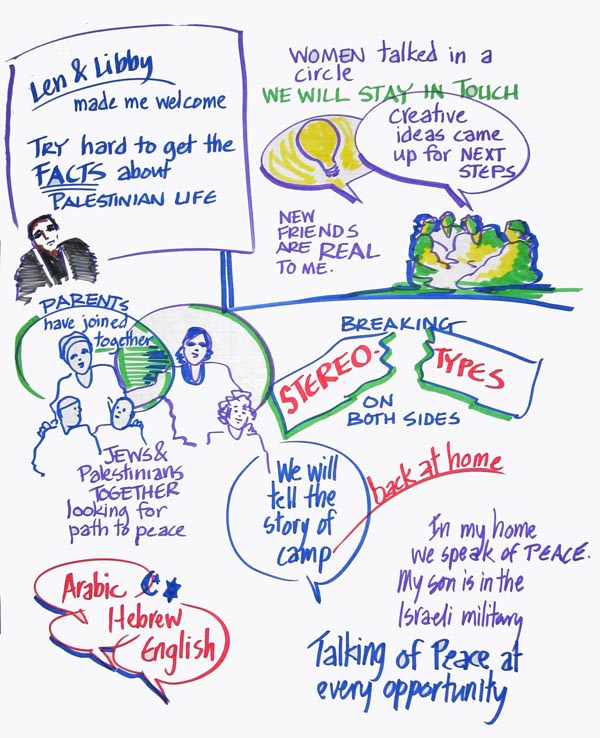 Len & Libby
made me welcome
TRY hard to get the
FACTS about
PALESTINIAN LIFE
WOMEN talked in a
circle
WE WILL STAY IN TOUCH
creative
ideas came
up for NEXT
STEPS
NEW
FRIENDS
ARE REAL
TO ME.
PARENTS
have joined
together
BREAKING
STEREO-
TYPES
ON
BOTH SIDES
JEWS &
Palestinians
TOGETHER
looking for
path to peace
We will
tell the
story of
camp
back at home
Arabic
Hebrew
English
In my home
we speak of PEACE.
My son is in the
Israeli military
Talking of Peace at
every opportunity